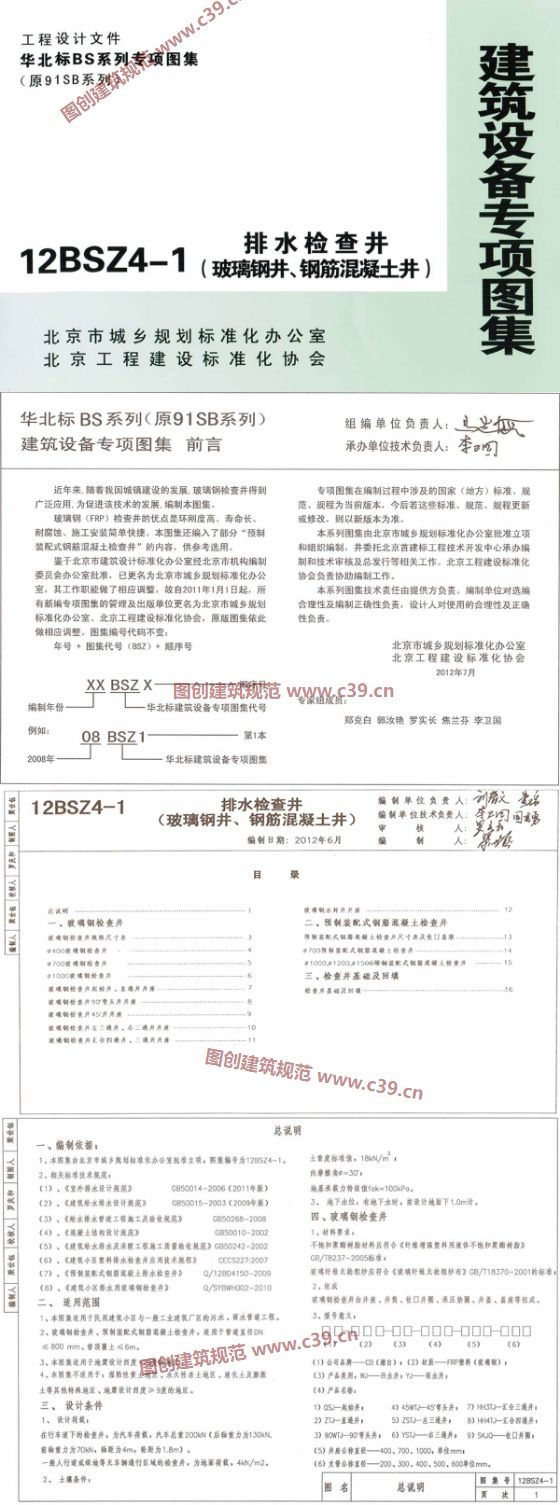 工程设计文件
华北标BS系列专项图集
(原91SB系列)
图创建筑规范 www.c39.cn
建筑设备专项图集
12BSZ4-1
排水检查井
(玻璃钢井、钢筋混凝土井)
北京市城乡规划标准化办公室
北京工程建设标准化协会
华北标BS系列(原91SB系列)
建筑设备专项图集 前言
组编单位负责人:
承办单位技术负责人:
近年来,随着我国城镇建设的发展,玻璃钢检查井得到
广泛应用,为促进该技术的发展,编制本图集。
玻璃钢(FRP)检查井的优点是环刚度高、寿命长、
耐腐蚀、施工安装简单快捷。本图集还编入了部分“预制
装配式钢筋混凝土检查井”的内容,供参考选用。
鉴于北京市建筑设计标准化办公室经北京市机构编制
委员会办公室批准,已更名为北京市城乡规划标准化办公
室,其工作职能做了相应调整,故自2011年1月1日起,所
有新编专项图集的管理及出版单位更名为北京市城乡规划
标准化办公室、北京工程建设标准化协会,原版图集依此
做相应调整,图集编号代码不变:
年号 + 图集代号(BSZ)+ 顺序号
XX BSZ X
顺序号
编制年份
华北标建筑设备专项图集代号
例如:
08 BSZ 1
第1本
2008年
华北标建筑设备专项图集
专项图集在编制过程中涉及的国家(地方)标准、规
范、规程为当前版本,今后若这些标准、规范、规程更新
或修改,则以新版本为准。
本系列图集由北京市城乡规划标准化办公室批准立项
和组织编制,并委托北京首建标工程技术开发中心承办编
制和技术审核及总发行等相关工作,北京工程建设标准化
协会负责协助编制工作。
本系列图集技术责任由提供方负责,编制单位对选编
合理性及编制正确性负责,设计人对使用的合理性及正确
性负责。
北京市城乡规划标准化办公室
北京工程建设标准化协会
2012年7月
专家组成员:
郑克白 郭汝艳 罗实长 焦兰芬 李卫国
图创建筑规范 www.c39.cn
12BSZ4-1
排水检查井
(玻璃钢井、钢筋混凝土井)
编制日期:2012年6月
编制单位负责人:
编制单位技术负责人:
审核人:
编制人:
目 录
总说明 1
一、玻璃钢检查井
玻璃钢检查井规格尺寸表 3
ø400玻璃钢检查井 4
ø700玻璃钢检查井 5
ø1000玻璃钢检查井 6
玻璃钢检查井起始井、直通井井座 7
玻璃钢检查井90°弯头井井座 8
玻璃钢检查井45°井井座 9
玻璃钢检查井左三通井、右三通井井座 10
玻璃钢检查井汇合四通井、三通井井座 11
玻璃钢水封井井座 12
二、预制装配式钢筋混凝土检查井
预制装配式钢筋混凝土检查井尺寸表及收口盖板 13
ø700预制装配式钢筋混凝土检查井 14
ø1000,ø1200,ø1500预制装配式钢筋混凝土检查井 15
三、检查井基础及回填
检查井基础及回填 16
图创建筑规范 www.c39.cn
总说明
一、编制依据:
1、本图集由北京市城乡规划标准化办公室批准立项,图集编号为12BSZ4-1。
2、相关标准技术规范:
(1)、《室外排水设计规范》 GB50014-2006(2011年版)
(2)、《建筑给水排水设计规范》 GB50015-2003(2009年版)
(3)、《给水排水管道工程施工及验收规范》 GB50268-2008
(4)、《混凝土结构设计规范》 GB50010-2002
(5)、《建筑给水排水及采暖工程施工质量验收规范》GB50242-2002
(6)、《建筑小区塑料排水检查井应用技术规程》 CECS227:2007
(7)、《预制装配式钢筋混凝土排水检查井》 Q/12BD4150-2009
(8)、《建筑小区排水用玻璃钢检查井》 Q/SYBWH002-2010
二、适用范围
1、本图集适用于民用建筑小区与一般工业建筑厂区的污水、雨水管道工程。
2、玻璃钢检查井、预制装配式钢筋混凝土检查井,适用于管道直径DN
≤800 mm,管顶覆土≤6m。
3、本图集适用于地震设计烈度
4、本图集不适用于:湿陷性黄土地区、永久性冻土地区、液化土及膨胀
土等其他特殊地区、地震设计烈度≥9度的地区。
三、设计条件
1、设计荷载:
在行车道下的检查井,为汽车荷载,汽车总重200kN(后轴重力为130kN,
前轴重力为70kN,轴距为4m,轮距为1.8m)。
一般人行道或绿地等无车辆通行区域的检查井,为地面荷载,4kN/m2。
2、土壤条件:
土壤重标准值,18kN/m³,
内摩擦角ø=30°;
地基承载力特征值fak=100kPa。
3、地下水位:有地下水时,按设计地面下1.0m计。
四、玻璃钢检查井
1、材料要求:
不饱和聚酯树脂材料应符合《纤维增强塑料用液体不饱和聚酯树脂》
GB/T8237-2005标准;
玻璃纤维无捻粗纱应符合《玻璃纤维无捻粗纱布》GB/T18370-2001的标准;
2、组成
玻璃钢检查井由井座、井筒、收口井圈、承压垫圈、井盖、盖座等组成。
3、型号意义:
(1) (2) (3) (4) (5) (6)
(1)公司品牌——CB(潮白);(2)材质——FRP塑料(玻璃钢);
(3)产品类别:WJ——污水井;YJ——雨水井;
(4)产品名称:
1) QSJ—起始井; 4) 45WTJ—45°弯头井; 7) HH3TJ—汇合三通井;
2) ZTJ—直通井; 5) ZSTJ—左三通井; 8) HH4TJ—汇合四通井;
3) 90WTJ—90°弯头井; 6) YSTJ—右三通井; 9) SKJQ—收口井圈;
(5)井座公称直径——400、700、1000,单位mm;
(6)支管公称直径——200、300、400、500、600单位mm。
图创建筑规范 www.c39.cn
图名 总说明 图集号 12BSZ4-1
页次 1